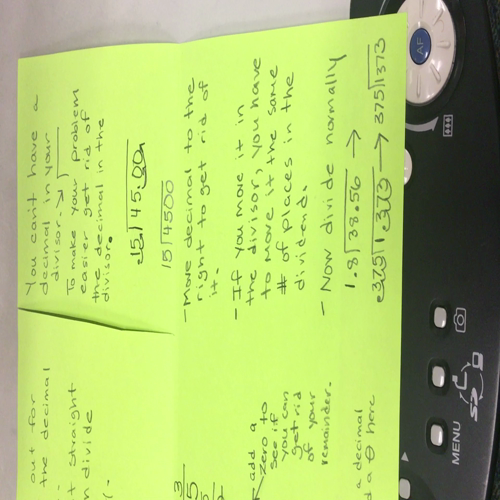 You can't have a
decimal in your
divisor.
To make your problem
easier get rid of
the decimal in the
divisor.
.15 45.00
15 4500
- Move decimal to the
right to get rid of
it.
- If you move it in
the divisor, you have
to move it the same
# of places in the
dividend.
- Now divide normally
1.8 38.56 →
.375 1.373 → 375 1373
out for
the decimal
t straight
divide
add a
zero to
see if
you can
get rid
of your
remainder.
a decimal
here
AF
MENU